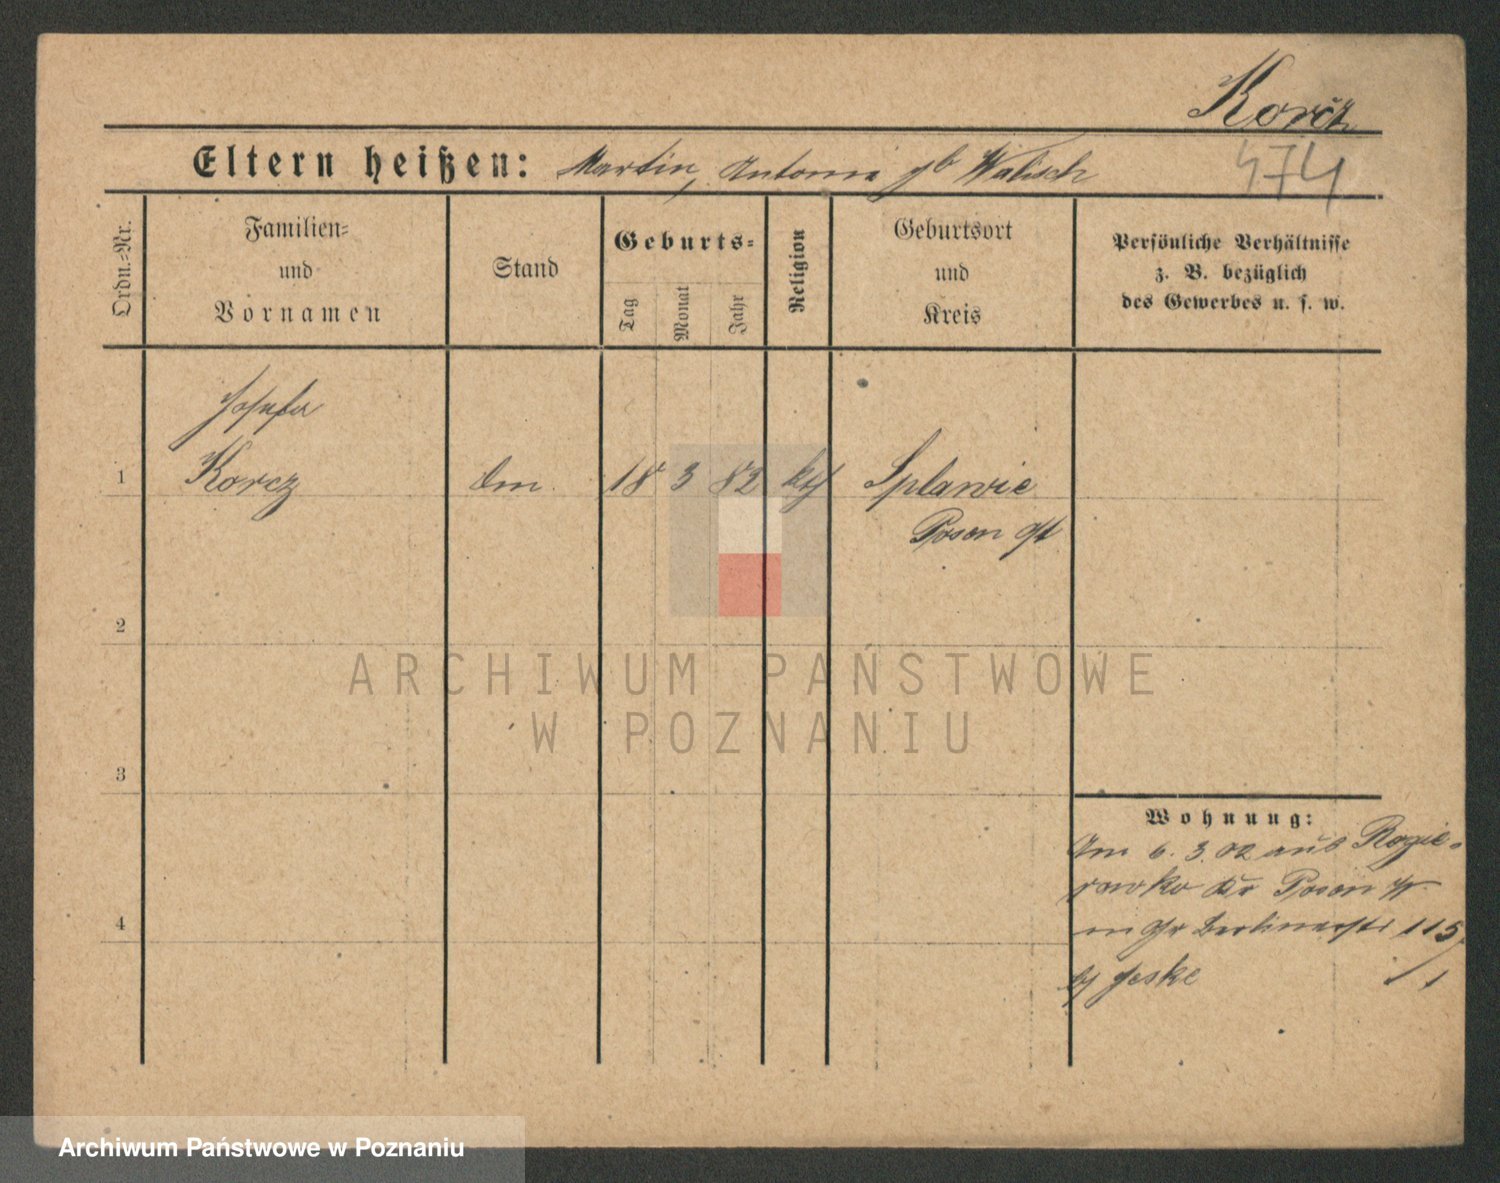 Korcz
Eltern heißen: Martin, Antonia gb Walisch
474
Ordn.-Nr.
Familien-
und
Vornamen
Stand
Geburts-
Tag
Monat
Jahr
Religion
Geburtsort
und
Kreis
Persönliche Verhältnisse
z. B. bezüglich
des Gewerbes u. s. w.
Josefa
1 Korcz 18 3 82 kth Splawie
Posen Ost
2
ARCHIWUM PAŃSTWOWE
W POZNANIU
3
Wohnung:
Am 6. 3. 02 aus Rogie-
rowko Kr Posen W.
Gr Berlinerstr 115
bei Jeske
4
Archiwum Państwowe w Poznaniu